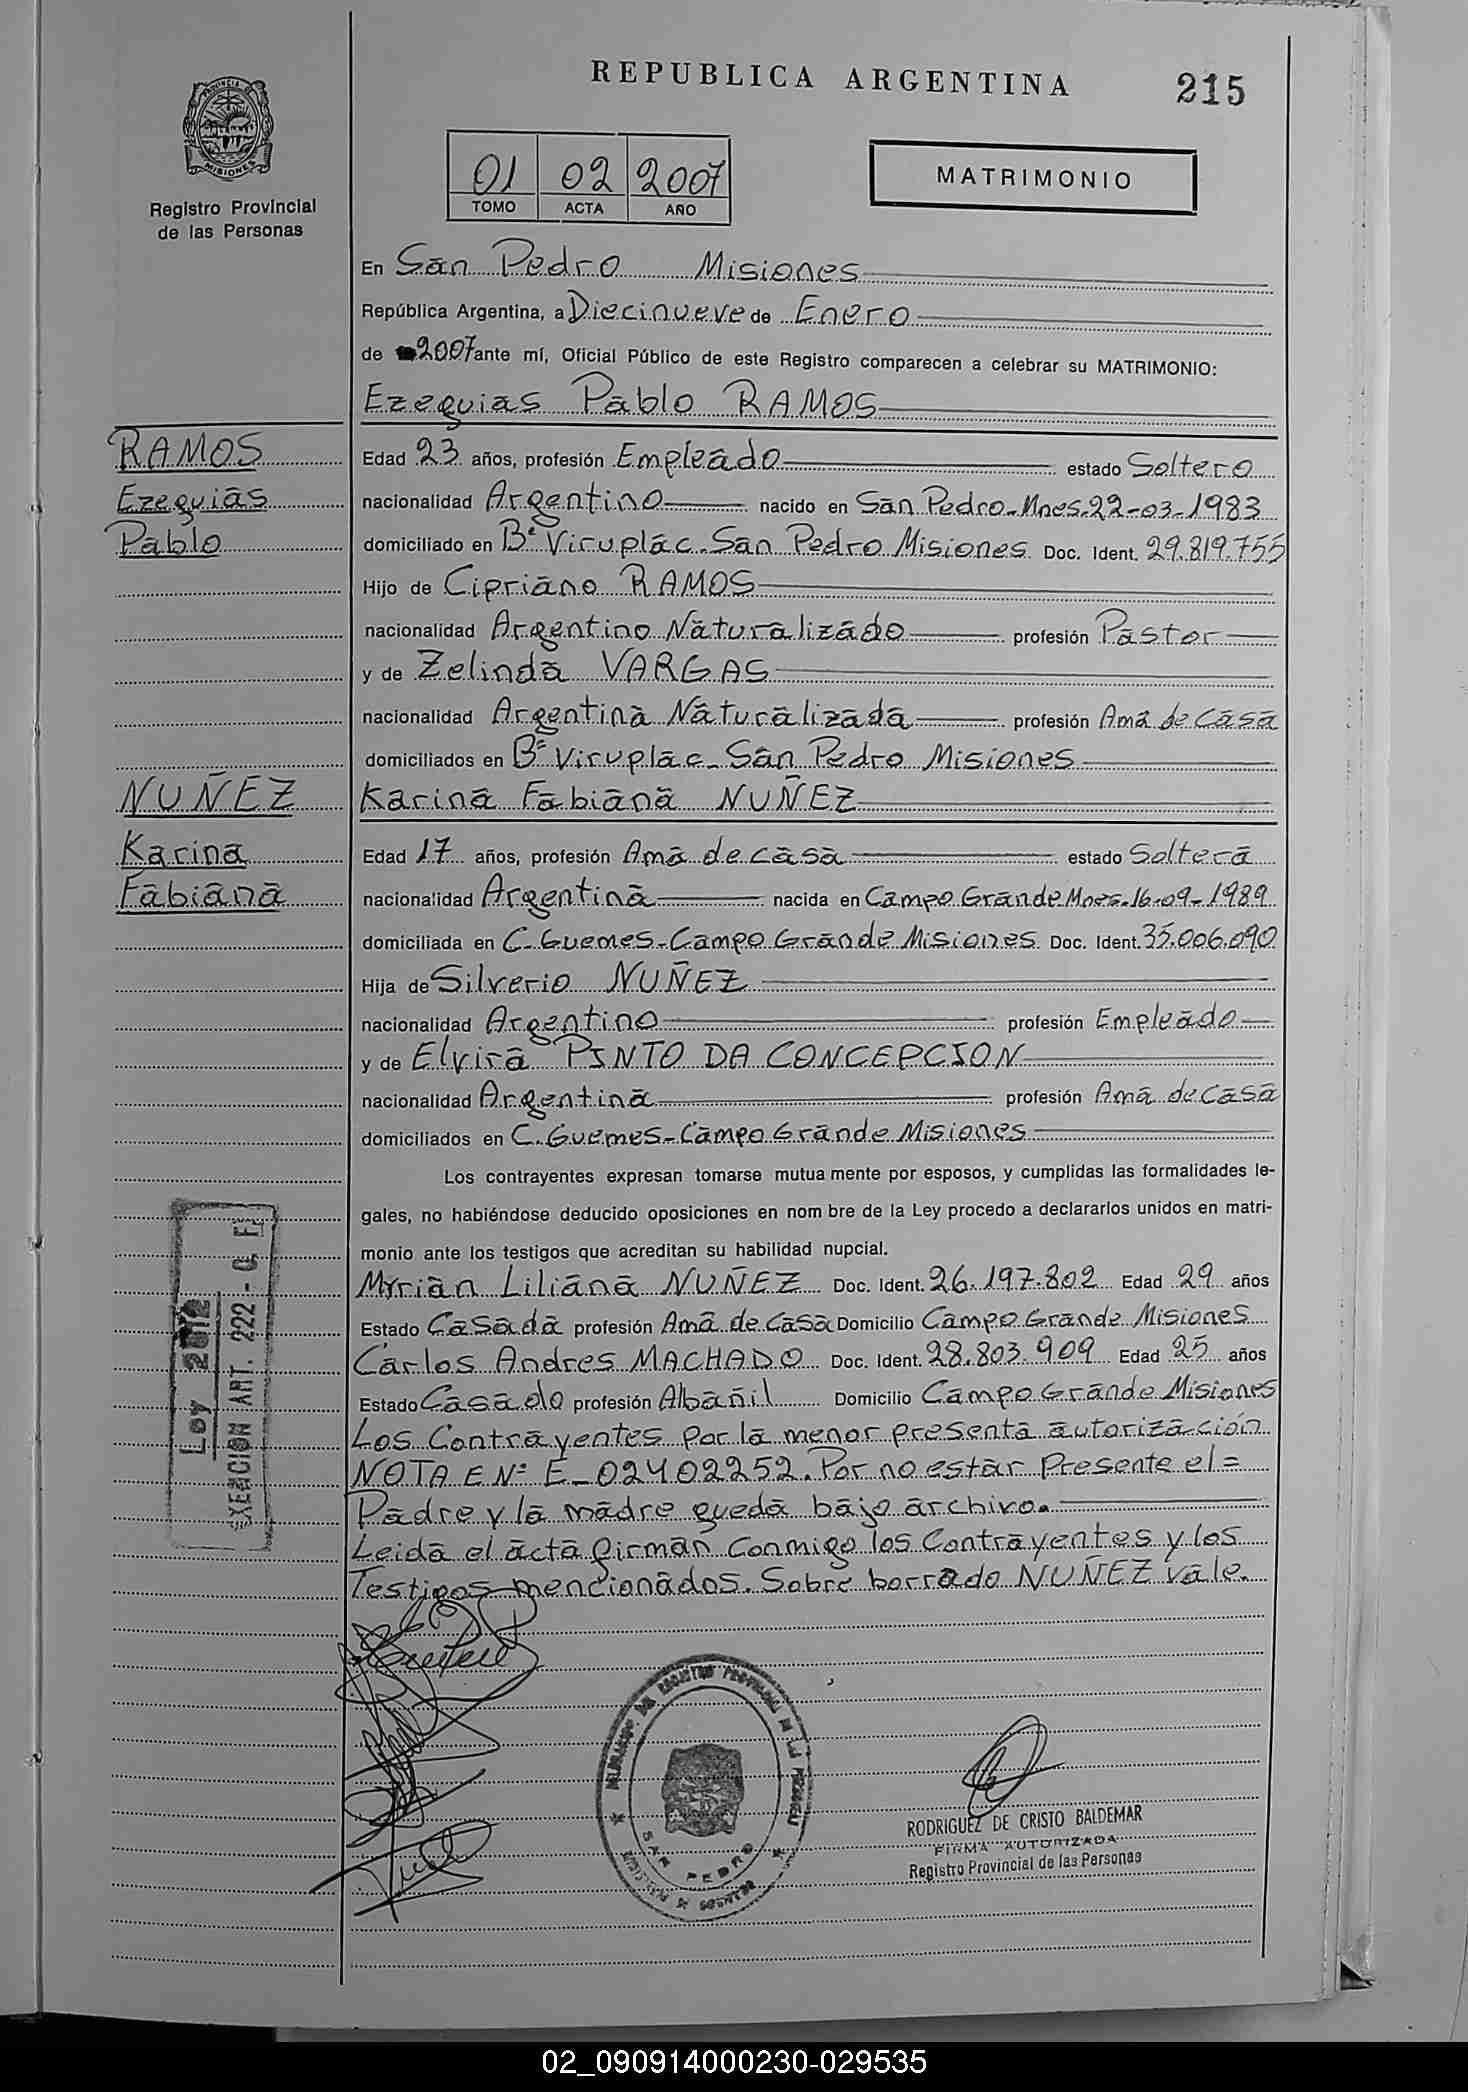 REPUBLICA ARGENTINA
215
PROVINCIA DE
MISIONES
Registro Provincial
de las Personas
01 02 2007
TOMO ACTA AÑO
MATRIMONIO
En San Pedro Misiones
República Argentina, a Diecinueve de Enero
de 2007 ante mí, Oficial Público de este Registro comparecen a celebrar su MATRIMONIO:
Ezequias Pablo RAMOS
RAMOS
Ezequias
Pablo
Edad 23 años, profesión Empleado estado Soltero
nacionalidad Argentino nacido en San Pedro-Mnes-22-03-1983
domiciliado en Bº Viruplac-San Pedro Misiones Doc. Ident. 29.819.755
Hijo de Cipriano RAMOS
nacionalidad Argentino Naturalizado profesión Pastor
y de Zelinda VARGAS
nacionalidad Argentina Naturalizada profesión Ama de Casa
domiciliados en Bº Viruplac-San Pedro Misiones
NUÑEZ
Karina
Fabiana
Karina Fabiana NUÑEZ
Edad 17 años, profesión Ama de Casa estado Soltera
nacionalidad Argentina nacida en Campo Grande Mnes-16-09-1989
domiciliada en C. Guemes-Campo Grande Misiones Doc. Ident. 35.006.090
Hija de Silverio NUÑEZ
nacionalidad Argentino profesión Empleado
y de Elvira PINTO DA CONCEPCION
nacionalidad Argentina profesión Ama de Casa
domiciliados en C. Guemes-Campo Grande Misiones
Los contrayentes expresan tomarse mutua mente por esposos, y cumplidas las formalidades le-
gales, no habiéndose deducido oposiciones en nom bre de la Ley procedo a declararlos unidos en matri-
monio ante los testigos que acreditan su habilidad nupcial.
Myrian Liliana NUÑEZ Doc. Ident. 26.197.802 Edad 29 años
Estado Casada profesión Ama de Casa Domicilio Campo Grande Misiones
Carlos Andres MACHADO Doc. Ident. 28.803.909 Edad 25 años
Estado Casado profesión Albañil Domicilio Campo Grande Misiones
Los Contrayentes por la menor presenta autorización
NOTA E Nº E-02402252. Por no estar Presente el=
Padre y la madre queda bajo archivo.
Leida el acta firman Conmigo los Contrayentes y los
Testigos mencionados. Sobre borrado NUÑEZ vale.
Ley 2012
EXENCION ART. 222 - C. F.
SAN PEDRO
RODRIGUEZ DE CRISTO BALDEMAR
FIRMA AUTORIZADA
Registro Provincial de las Personas
02_090914000230-029535